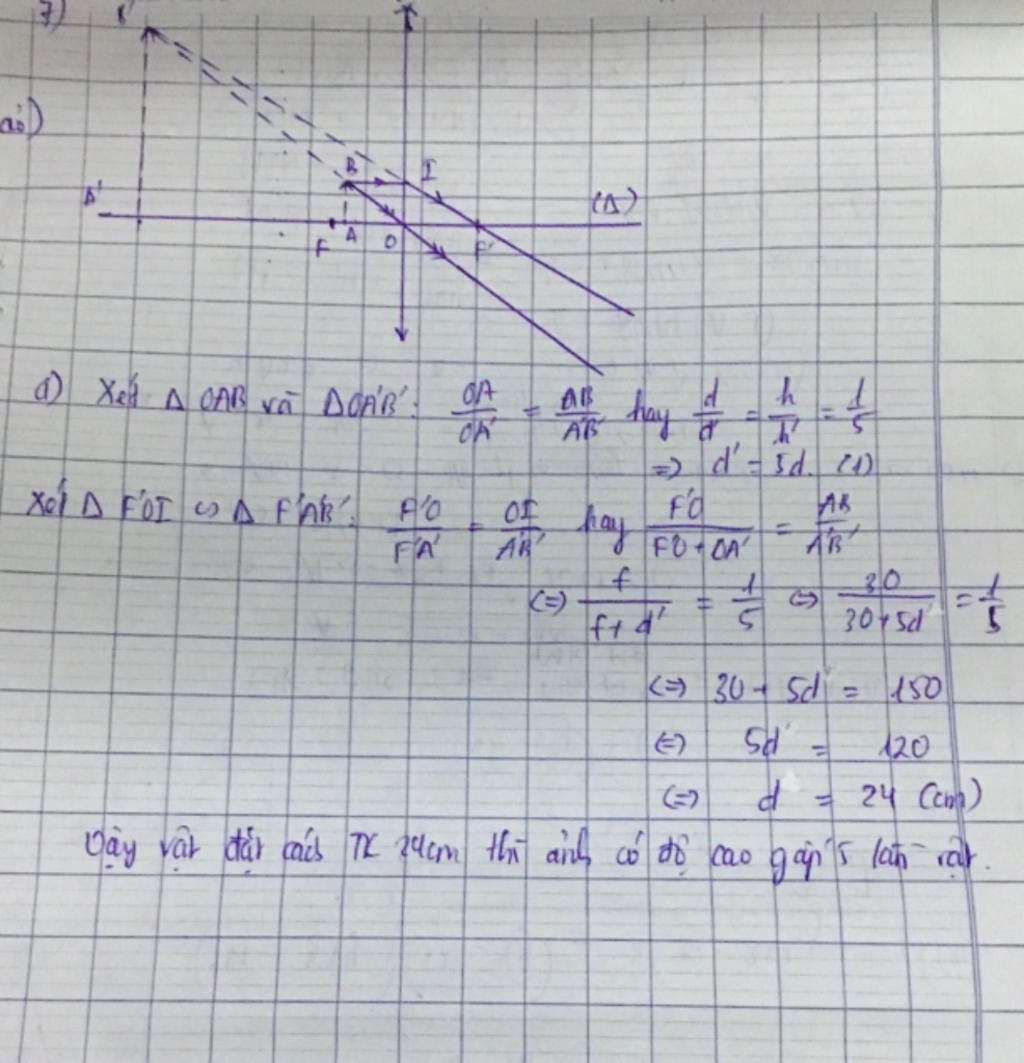 7)
ảo)
B I
A' (Δ)
F A O F'
a) Xét Δ OAB và Δ OA'B': OA/OA' = AB/A'B' hay d/d' = h/h' = 1/5
=> d' = 5d. (1)
Xét Δ F'OI ∽ Δ F'A'B': F'O/F'A' = OI/A'B' hay F'O/F'O + OA' = AB/A'B'
<=> f/f + d' = 1/5 <=> 30/30 + 5d = 1/5
<=> 30 + 5d = 150
<=> 5d = 120
<=> d = 24 (cm)
Vậy vật đặt cách TK 24cm thì ảnh có độ cao gấp 5 lần vật.